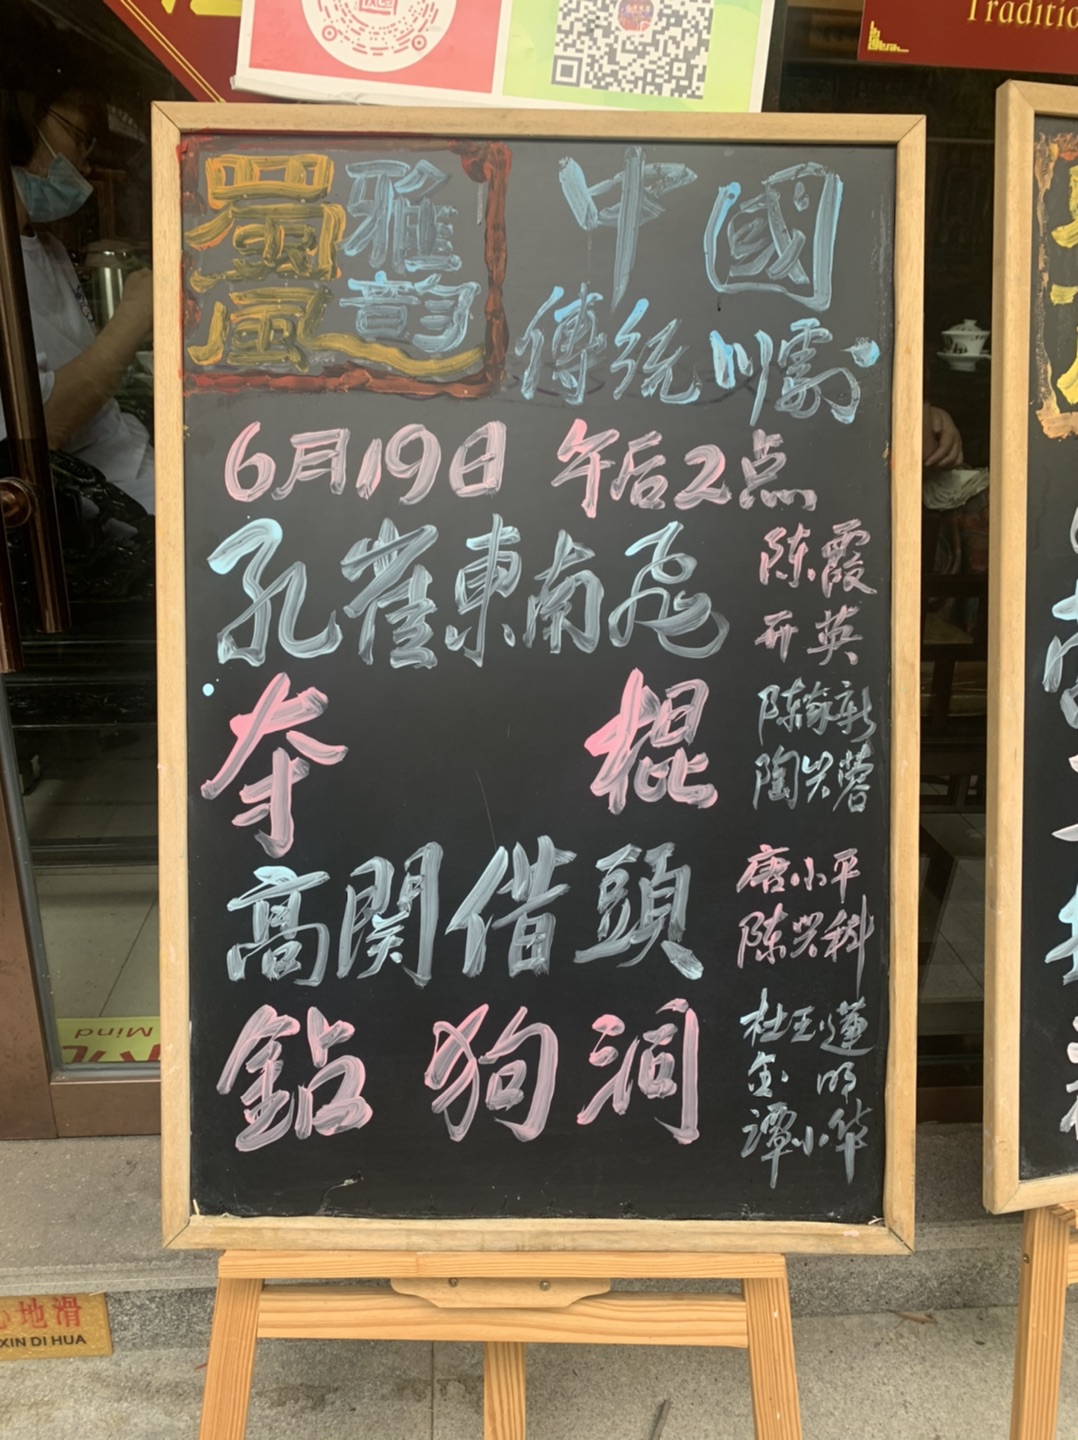 蜀風雅韵
中國
傳統川劇
6月19日 午后2点
孔雀東南飛 陈霞
开英
夺棍 陈家新
陶兴蓉
高關借頭 唐小平
陈兴科
鉆狗洞 杜玉蓮
金明
谭小华
Traditio
Mind
心地滑
XIN DI HUA